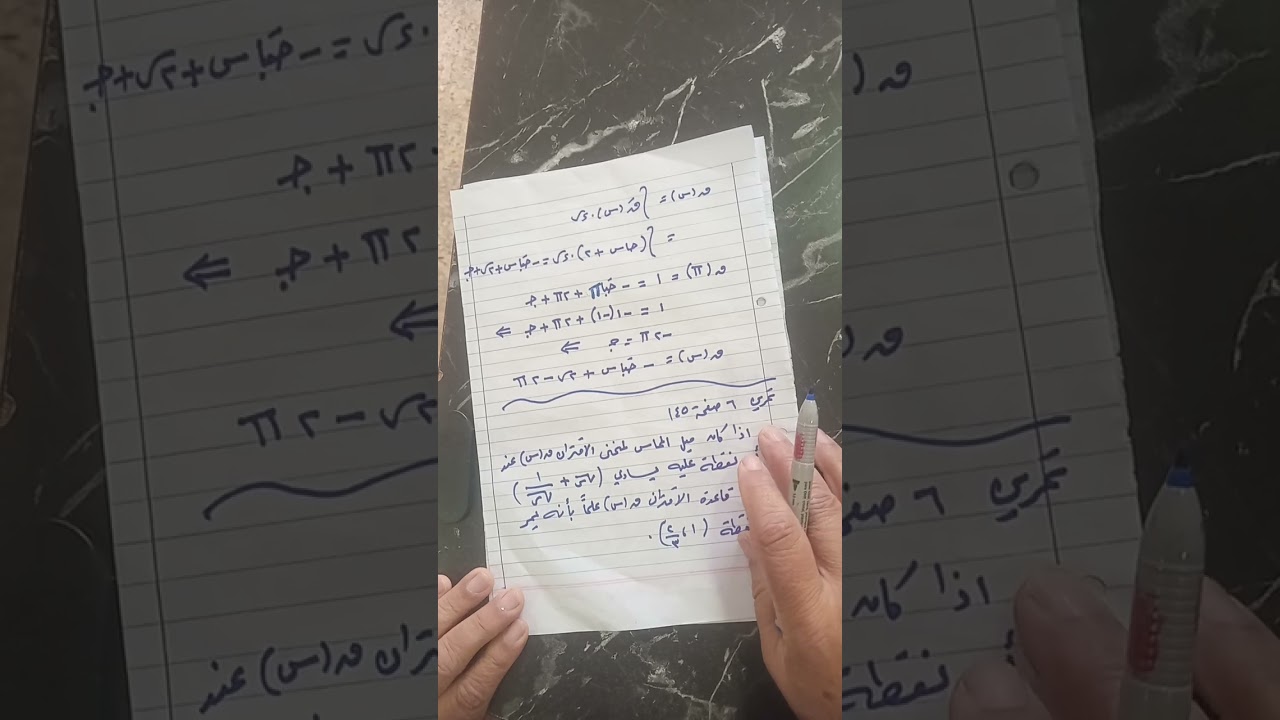 ق(س) = ∫ قَ(س) . ءس
= ∫ (جاس + ٢) . ءس = - جتاس + ٢س + ج
ق(π) = ١ = - جتاπ + ٢π + ج
١ = - (-١) + ٢π + ج ⇐
- ٢π = ج ⇐
ق(س) = - جتاس + ٢س - ٢π
تمرين ٦ صفحة ١٤٥
اذا كان ميل المماس لمنحنى الاقتران ق(س) عند
نقطة عليه يساوي (√س + ١/√س)
قاعدة الاقتران ق(س) علماً بأنه يمر
(١ ، ٢/٣) .